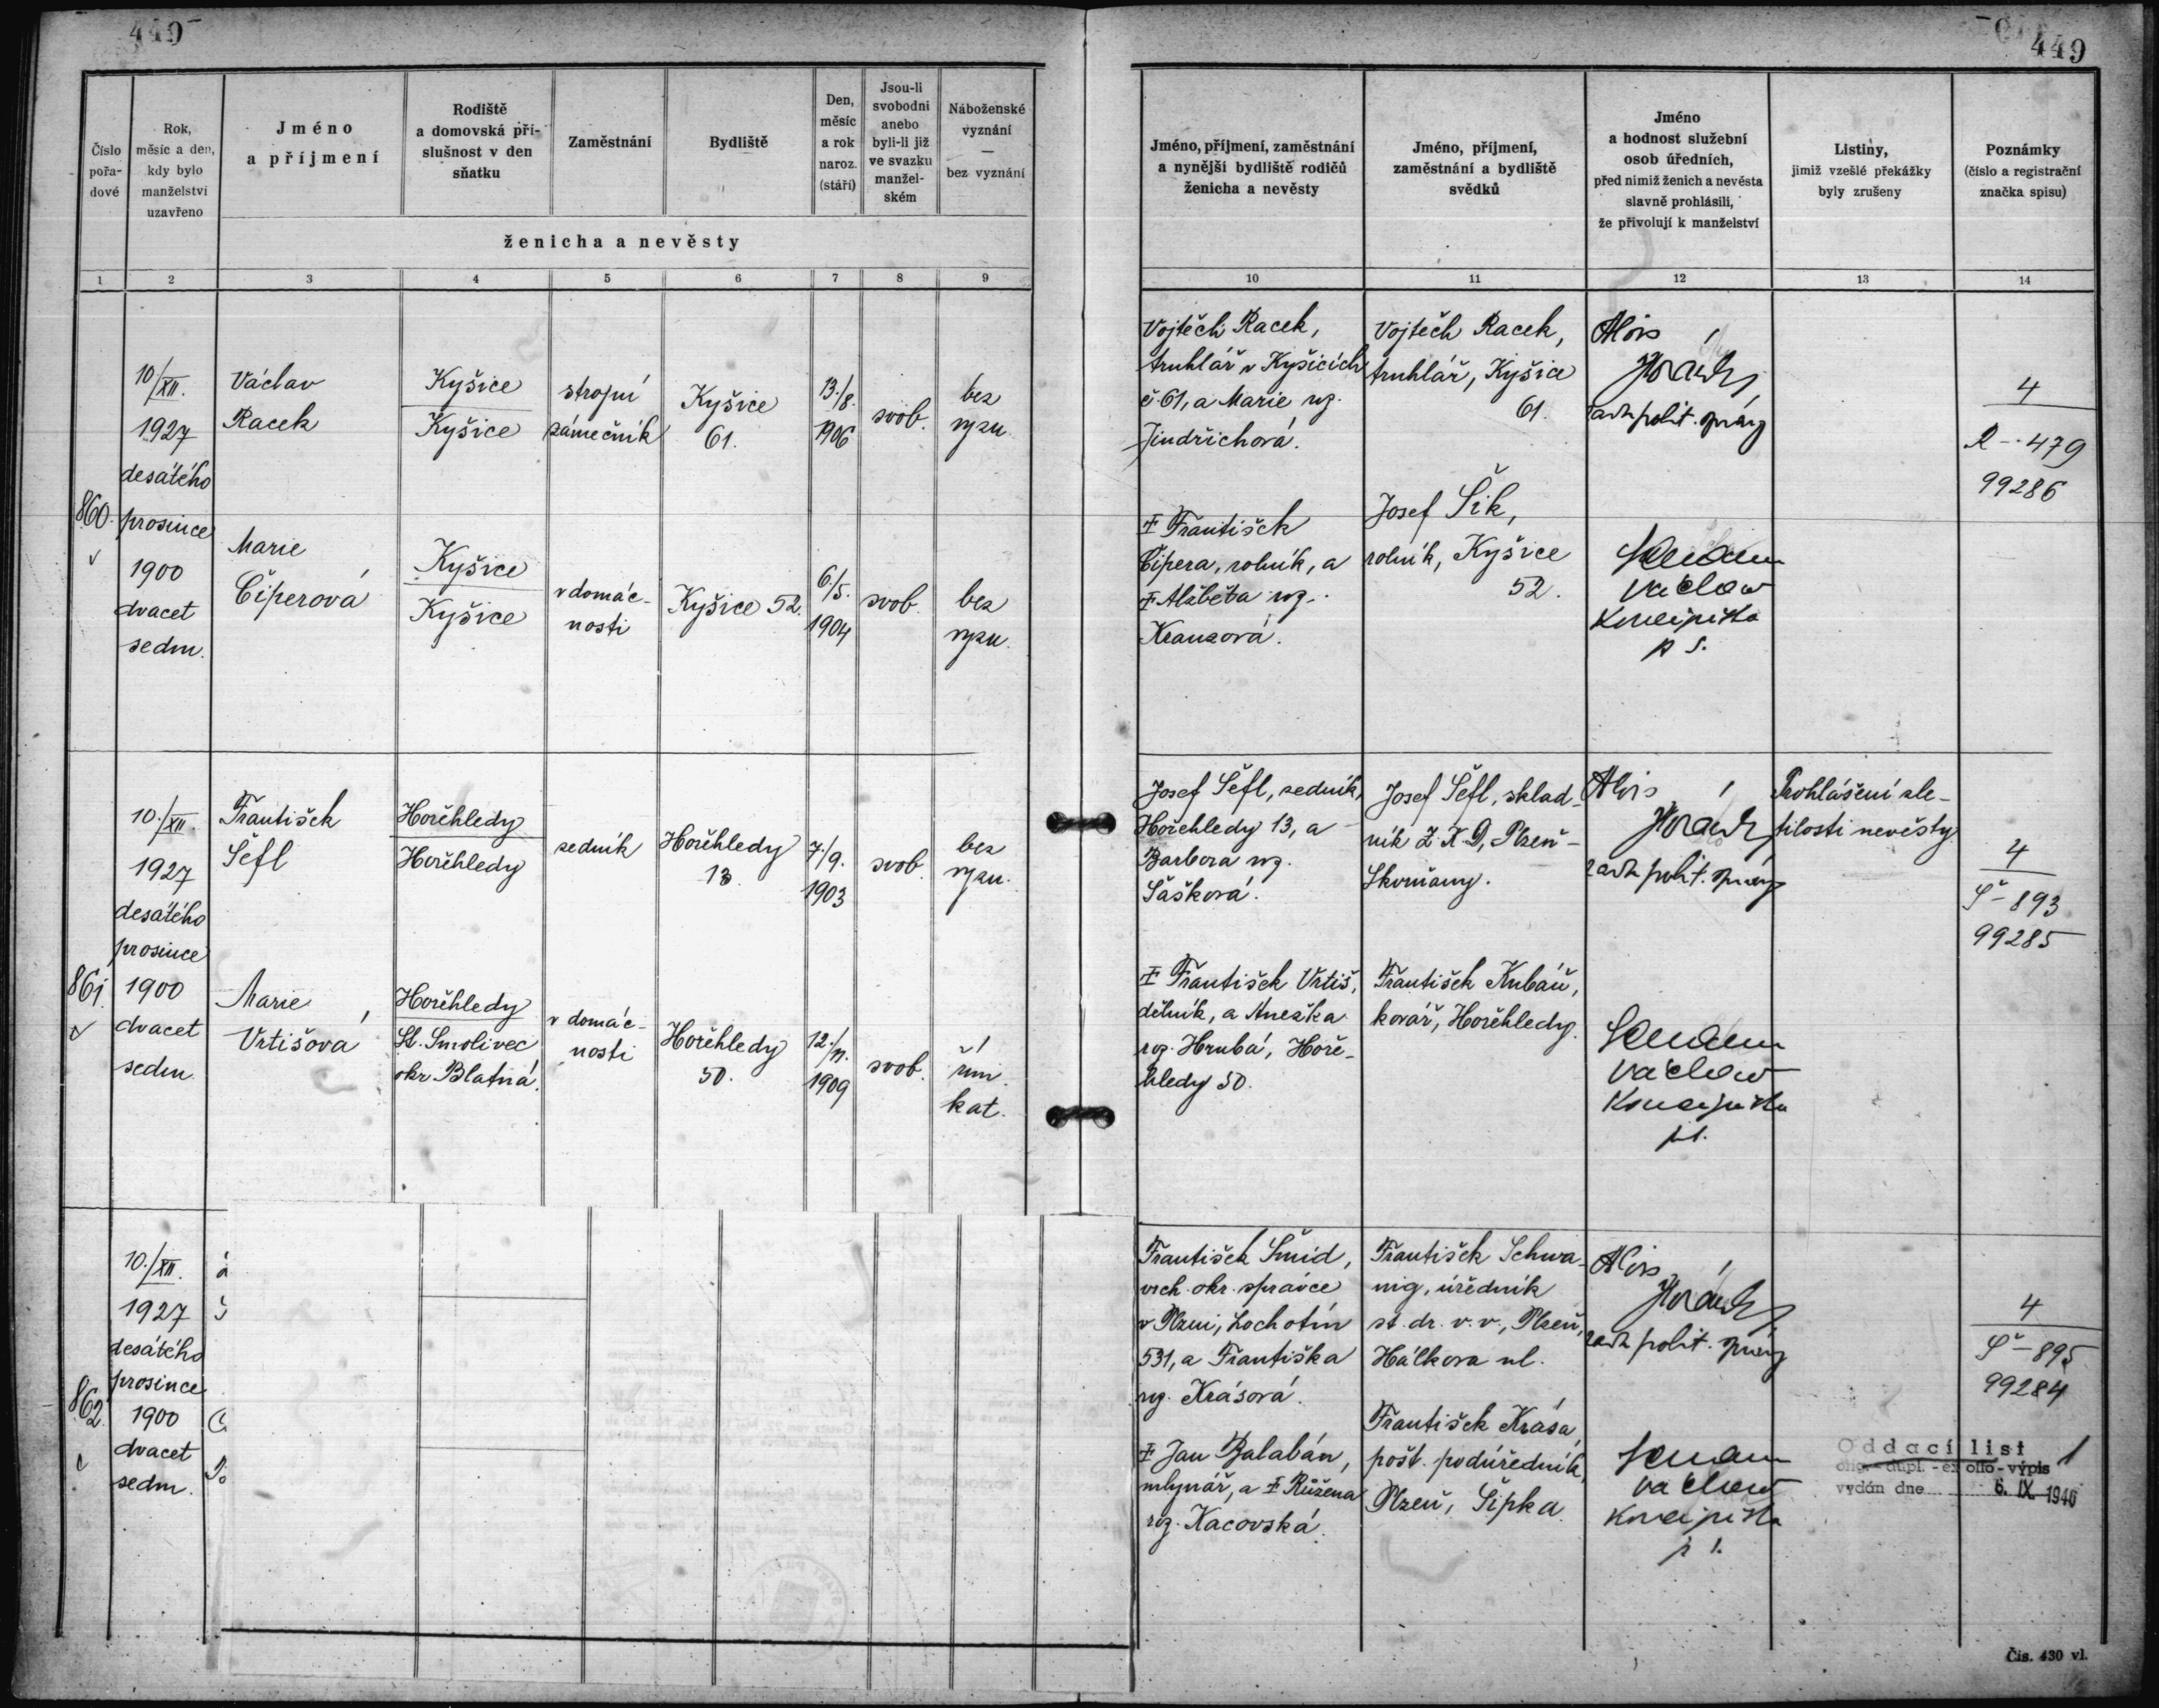 449
449
Číslo pořa-dové
Rok, měsíc a den, kdy bylo manželství uzavřeno
Jméno a příjmení
Rodiště a domovská pří-slušnost v den sňatku
Zaměstnání
Bydliště
Den, měsíc a rok naroz. (stáří)
Jsou-li svobodni anebo byli-li již ve svazku manžel-ském
Náboženské vyznání — bez vyznání
ženicha a nevěsty
Jméno, příjmení, zaměstnání a nynější bydliště rodičů ženicha a nevěsty
Jméno, příjmení, zaměstnání a bydliště svědků
Jméno a hodnost služební osob úředních, před nimiž ženich a nevěsta slavně prohlásili, že přivolují k manželství
Listiny, jimiž vzešlé překážky byly zrušeny
Poznámky (číslo a registrační značka spisu)
1 2 3 4 5 6 7 8 9 10 11 12 13 14
860.
10/XII.
1927
desátého
prosince
1900
dvacet
sedm.
Václav
Racek
Kyšice
Kyšice
strojní
zámečník
Kyšice
61.
13./8.
1906
svob.
bez
vyzn.
Marie
Čiperová
Kyšice
Kyšice
v domác-
nosti
Kyšice 52.
6./5.
1904
svob.
bez
vyzn.
Vojtěch Racek,
truhlář v Kyšicích
č. 61, a Marie roz.
Jindřichová.
‡ František
Čipera, rolník, a
‡ Alžběta roz.
Kranzová.
Vojtěch Racek,
truhlář, Kyšice
61.
Josef Šik,
rolník, Kyšice
52.
Alois
rada polit. správy
Václav
4
R - 479
99286
861.
10./XII.
1927
desátého
prosince
1900
dvacet
sedm.
František
Šefl
Hořehledy
Hořehledy
sedník
Hořehledy
13.
7./9.
1903
svob.
bez
vyzn.
Marie
Vrtišová
Hořehledy
St. Smolivec
okr. Blatná.
v domác-
nosti
Hořehledy
50.
12./11.
1909
svob.
řím.
kat.
Josef Šefl, sedník,
Hořehledy 13, a
Barbora roz.
Šašková.
‡ František Vrtiš,
dělník, a Anežka
roz. Hrubá, Hoře-
hledy 50.
Josef Šefl, sklad-
ník Z. K. D, Plzeň -
Skvrňany.
František Kubáň,
kovář, Hořehledy.
Alois
rada polit. správy
Václav
Prohlášení zle-
tilosti nevěsty.
4
Š - 893
99285
862.
10./XII.
1927
desátého
prosince
1900
dvacet
sedm.
František Šmíd,
vrch. okr. správce
v Plzni, Lochotín
531, a Františka
roz. Krásová.
‡ Jan Balabán,
mlynář, a ‡ Růžena
roz. Kacovská.
František Schwa-
nig, úředník
st. dr. v. v., Plzeň,
Hálkova ul.
František Krása,
pošt. podúředník,
Plzeň, Šipka.
Alois
rada polit. správy
Václav
4
Š - 895
99284
Oddací list 1
orig. - dupl. - ex offo - výpis
vydán dne 6. IX. 1946
Čis. 430 vl.